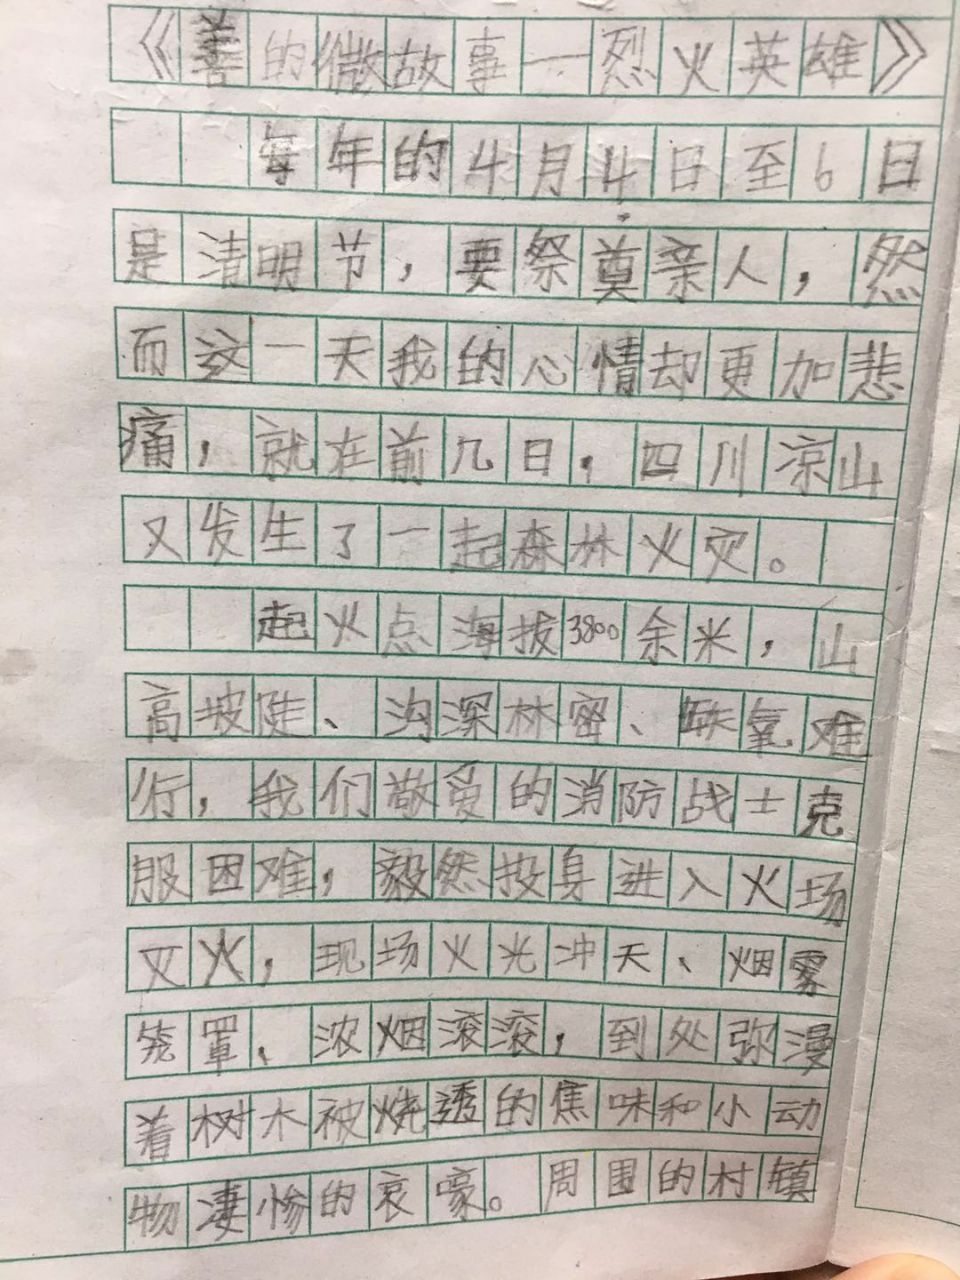 《善的微故事一烈火英雄》
每年的4月4日至6日
是清明节，要祭奠亲人，然
而这一天我的心情却更加悲
痛，就在前几日，四川凉山
又发生了一起森林火灾。
起火点海拔3800余米，山
高坡陡、沟深林密、缺氧难
行，我们敬爱的消防战士克
服困难，毅然投身进入火场
灭火，现场火光冲天、烟雾
笼罩、浓烟滚滚，到处弥漫
着树木被烧透的焦味和小动
物凄惨的哀嚎。周围的村镇